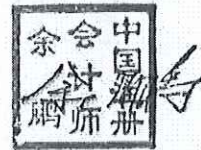 中国注册
会计师
余鹏